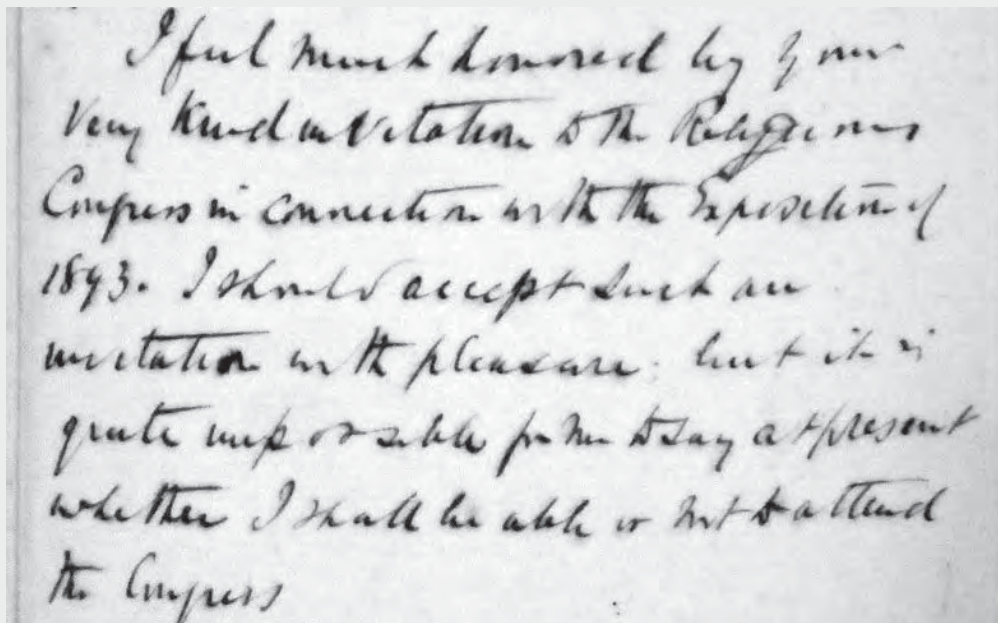 I feel much honored by your
very kind invitation to the Religious
Congress in connection with the Exposition of
1893. I should accept such an
invitation with pleasure; but it is
quite impossible for me to say at present
whether I shall be able or not to attend
the Congress